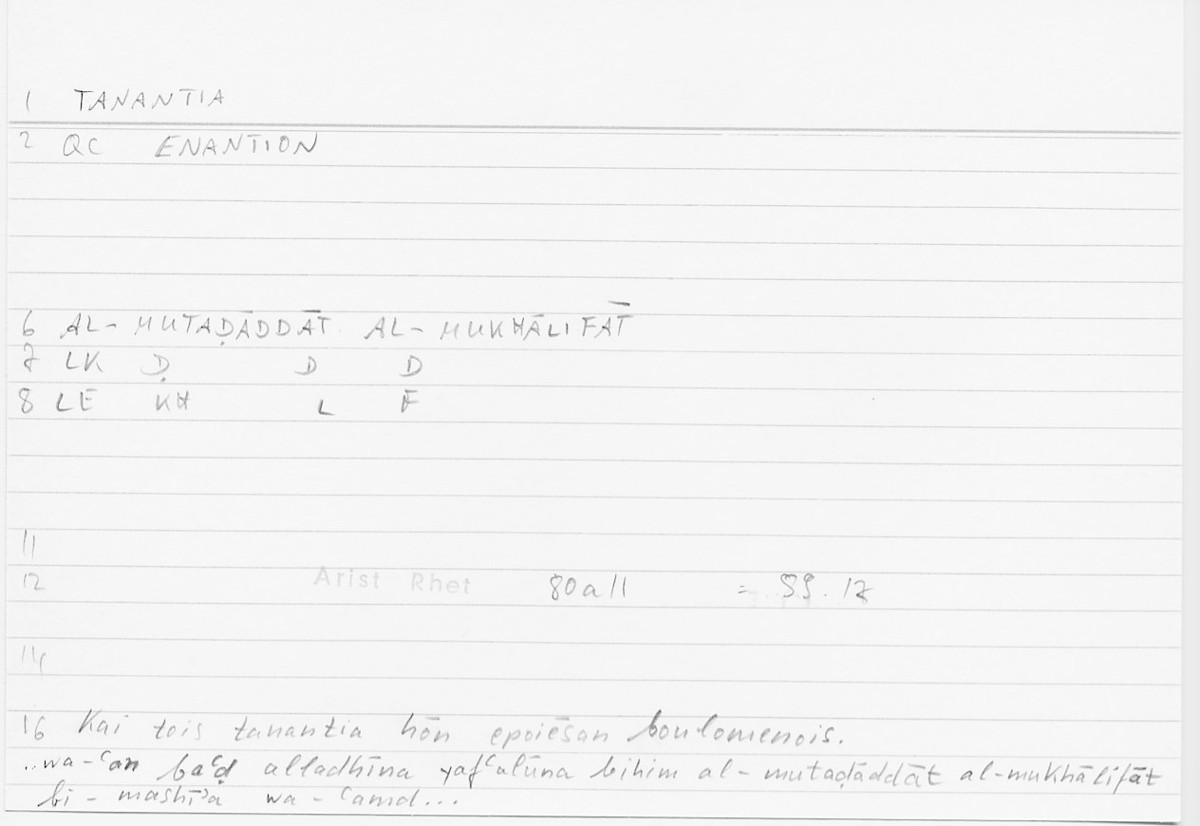 1 TANANTIA
2 QC ENANTION
6 AL-MUTAḌĀDDĀT AL-MUKHĀLIFĀT
7 LK Ḍ D D
8 LE KH L F
11
12 Arist Rhet 80a11 = 99.17
14
16 Kai tois tanantia hōn epoiēsan boulomenois.
..wa-ʿan baʿḍ alladhīna yafʿalūna bihim al-mutaḍāddāt al-mukhālifāt
bi-mashīʾa wa-ʿamd...